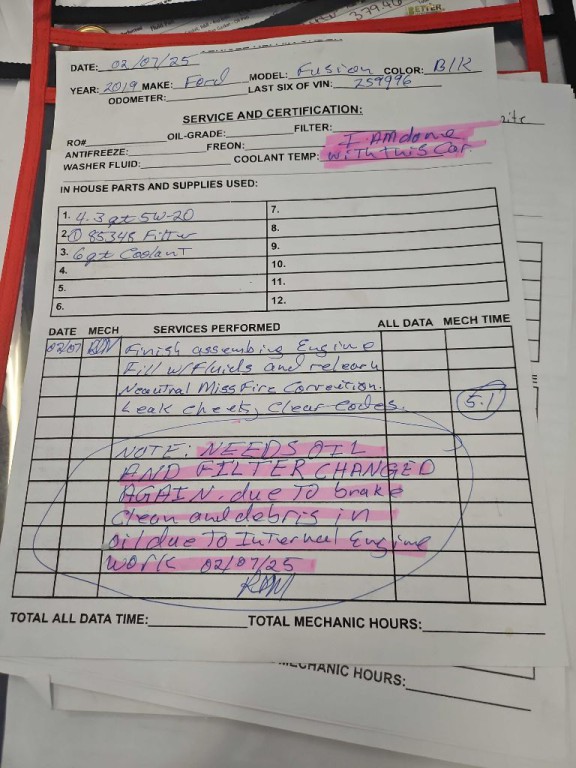 379.96
BETTER.
DATE: 02/07/25
YEAR: 2019 MAKE: Ford MODEL: Fusion COLOR: Blk
ODOMETER: LAST SIX OF VIN: 259996
SERVICE AND CERTIFICATION:
RO# OIL-GRADE: FILTER:
ANTIFREEZE: FREON: I AM done
WASHER FLUID: COOLANT TEMP: with this Car.
IN HOUSE PARTS AND SUPPLIES USED:
1. 4.3 qt 5W-20 7.
2. ① 85348 Filter 8.
3. 6 qt Coolant 9.
4. 10.
5. 11.
6. 12.
DATE MECH SERVICES PERFORMED ALL DATA MECH TIME
02/07 Finish assembing Engine
Fill w/Fluids and relearn
Neautral Miss Fire Correction.
Leak check, Clear Codes. 5.1
NOTE: NEEDS OIL
AND FILTER CHANGED
AGAIN. due To brake
Clean and debris in
oil due To Internal Engine
work 02/07/25
TOTAL ALL DATA TIME: TOTAL MECHANIC HOURS:
MECHANIC HOURS: